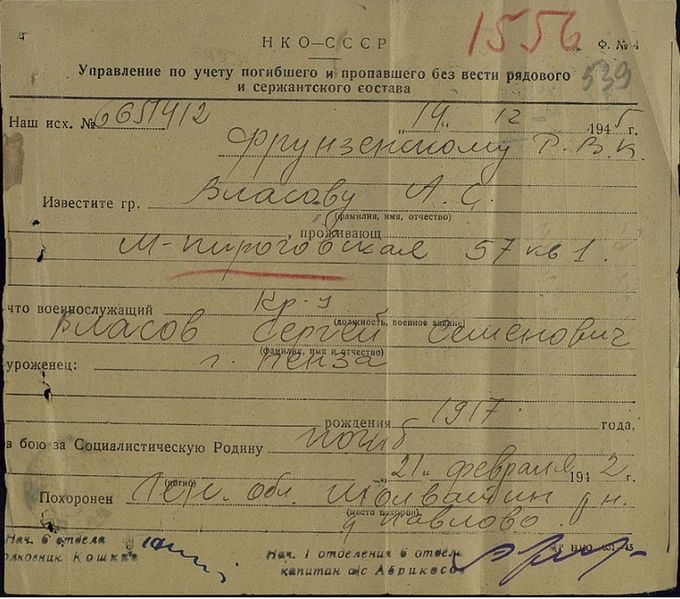 1556
НКО—СССР
Ф. № 4
Управление по учету погибшего и пропавшего без вести рядового
и сержантского состава
539
Наш исх. № 6651412 „19" 12 1945 г.
Фрунзенскому Р.В.К.
Известите гр. Власову А. С.
(фамилия, имя, отчество)
, проживающ
М-Пироговская 57 кв 1.
что военнослужащий Кр-ц
(должность, военное звание)
Власов Сергей Семенович
(фамилия, имя и отчество)
уроженец: г. Пенза
1917 рождения года,
в бою за Социалистическую Родину погиб
(погиб) „21" февраля 1942 г.
Похоронен Лен. обл. Молвятин рн.
(место похорон)
д Павлово.
Нач. 6 отдела
Нач. 1 отделения 6 отдела
капитан а/с Абрикосов